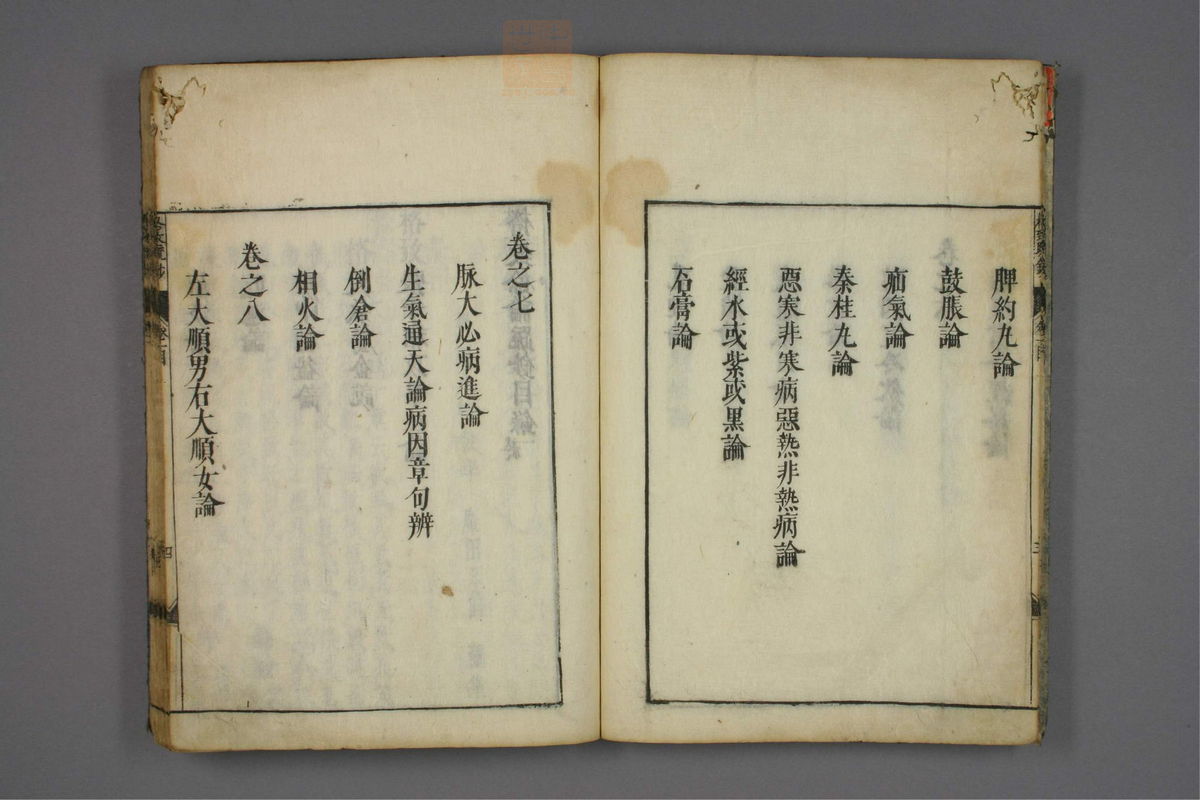 脾約丸論
鼓脹論
疝氣論
秦桂丸論
惡寒非寒病惡熱非熱病論
經水或紫或黑論
石膏論
卷之七
脉大必病進論
生氣通天論病因章句辨
倒倉論
相火論
卷之八
左大順男右大順女論
四